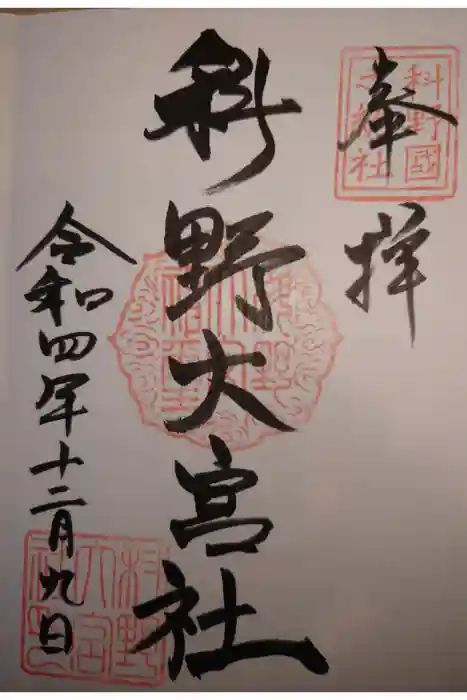 奉拝
科野國大宮社
科野大宮社
令和四年十二月九日
科野大宮社